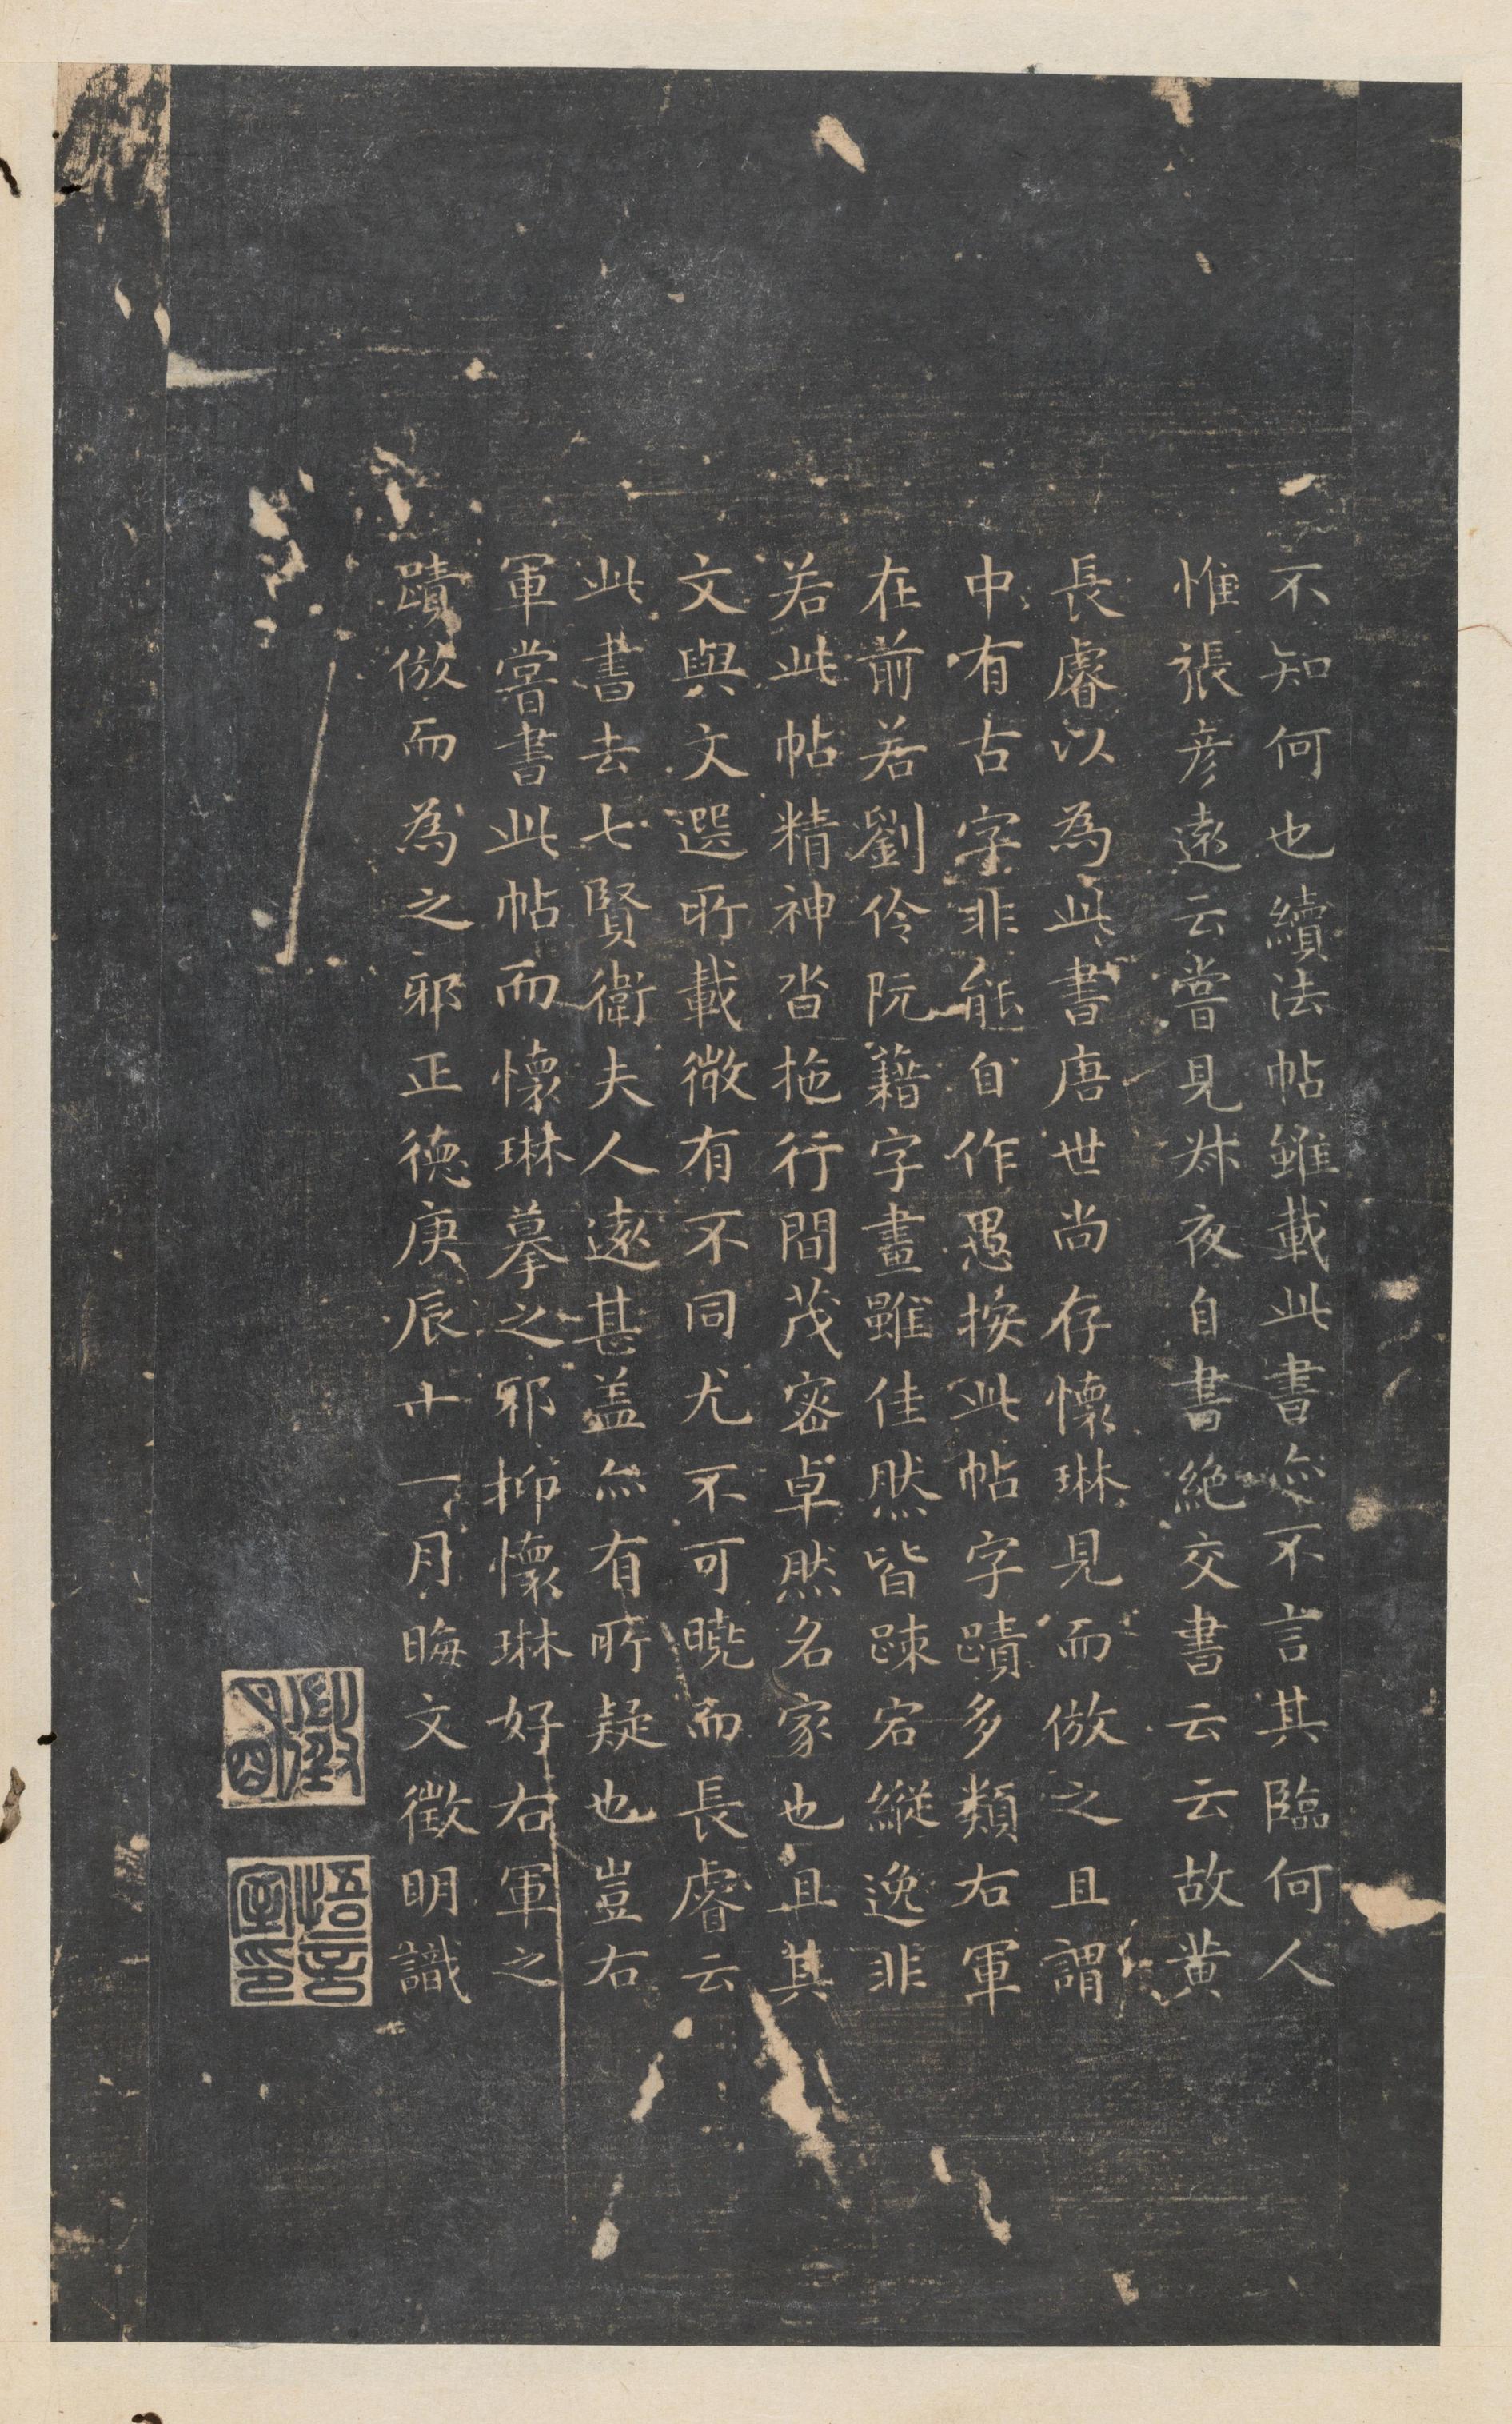 不知何也續法帖雖載此書亦不言其臨何人
惟張彦遠云嘗見叔夜自書絶交書云云故黄
長睿以為此書唐世尚存懷琳見而倣之且謂
中有古字非能自作愚按此帖字蹟多類右軍
在前若劉伶阮籍字畫雖佳然皆踈宕縱逸非
若此帖精神沓拖行間茂密卓然名家也且其
文與文選所載微有不同尤不可曉而長睿云
此書去七賢衛夫人遠甚盖亦有所疑也豈右
軍嘗書此帖而懷琳摹之邪抑懷琳好右軍之
蹟倣而為之邪正德庚辰十一月晦文徵明識
徵明印
悟言室印